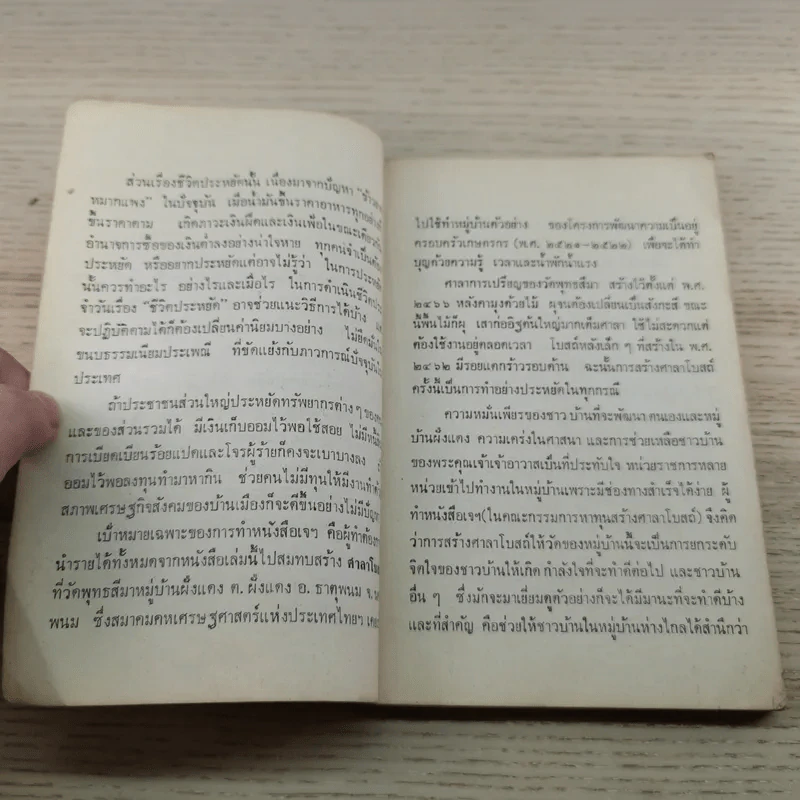 ส่วนเรื่องชีวิตประหยัดนั้น เนื่องมาจากปัญหา "ข้าวยาก
หมากแพง" ในปัจจุบัน เมื่อน้ำมันขึ้นราคาอาหารทุกอย่างก็
ขึ้นราคาตาม เกิดภาวะเงินฝืดและเงินเฟ้อในขณะเดียวกัน
อำนาจการซื้อของเงินต่ำลงอย่างน่าใจหาย ทุกคนจำเป็นต้อง
ประหยัด หรืออยากประหยัดแต่อาจไม่รู้ว่า ในการประหยัด
นั้นควรทำอะไร อย่างไรและเมื่อไร ในการดำเนินชีวิตประ
จำวันเรื่อง "ชีวิตประหยัด" อาจช่วยแนะวิธีการได้บ้าง
จะปฏิบัติตามได้ก็ต้องเปลี่ยนค่านิยมบางอย่าง ไม่ยึดมั่นใน
ขนบธรรมเนียมประเพณี ที่ขัดแย้งกับภาวการณ์ปัจจุบัน
ประเทศ
ถ้าประชาชนส่วนใหญ่ประหยัดทรัพยากรต่างๆ ของ
และของส่วนรวมได้ มีเงินเก็บออมไว้พอใช้สอย ไม่มีหนี้
การเบียดเบียนร้อยแปดและโจรผู้ร้ายก็คงจะเบาบางลง
ออมไว้พอลงทุนทำมาหากิน ช่วยคนไม่มีทุนให้มีงานทำ
สภาพเศรษฐกิจสังคมของบ้านเมืองก็จะดีขึ้นอย่างไม่มีปัญหา
เป้าหมายเฉพาะของการทำหนังสือเจฯ คือผู้ทำต้องการ
นำรายได้ทั้งหมดจากหนังสือเล่มนี้ไปสมทบสร้าง ศาลาโบสถ์
ที่วัดพุทธสีมาหมู่บ้านฝั่งแดง ต. ฝั่งแดง อ. ธาตุพนม จ. นคร
พนม ซึ่งสมาคมคหเศรษฐศาสตร์แห่งประเทศไทยฯ เคย
ไปใช้ทำหมู่บ้านตัวอย่าง ของโครงการพัฒนาความเป็นอยู่
ครอบครัวเกษตรกร (พ.ศ. ๒๕๒๑-๒๕๒๒) เพื่อจะได้ทำ
บุญด้วยความรู้ เวลาและน้ำพักน้ำแรง
ศาลาการเปรียญของวัดพุทธสีมา สร้างไว้ตั้งแต่ พ.ศ.
๒๔๖๖ หลังคามุงด้วยไม้ ผุจนต้องเปลี่ยนเป็นสังกะสี ขณะ
นี้พื้นไม้ก็ผุ เสาก่ออิฐต้นใหญ่มากเต็มศาลา ใช้ไม่สะดวกแต่
ต้องใช้งานอยู่ตลอดเวลา โบสถ์หลังเล็ก ๆ ที่สร้างใน พ.ศ.
๒๔๖๒ มีรอยแตกร้าวรอบด้าน ฉะนั้นการสร้างศาลาโบสถ์
ครั้งนี้เป็นการทำอย่างประหยัดในทุกกรณี
ความหมั่นเพียรของชาวบ้านที่จะพัฒนาตนเองและหมู่
บ้านฝั่งแดง ความเคร่งในศาสนา และการช่วยเหลือชาวบ้าน
ของพระคุณเจ้าเจ้าอาวาสเป็นที่ประทับใจ หน่วยราชการหลาย
หน่วยเข้าไปทำงานในหมู่บ้านเพราะมีช่องทางสำเร็จได้ง่าย ผู้
ทำหนังสือเจฯ(ในคณะกรรมการหาทุนสร้างศาลาโบสถ์) จึงคิด
ว่าการสร้างศาลาโบสถ์ให้วัดของหมู่บ้านนี้จะเป็นการยกระดับ
จิตใจของชาวบ้านให้เกิด กำลังใจที่จะทำดีต่อไป และชาวบ้าน
อื่น ๆ ซึ่งมักจะมาเยี่ยมดูตัวอย่างก็จะได้มีมานะที่จะทำดีบ้าง
และที่สำคัญ คือช่วยให้ชาวบ้านในหมู่บ้านห่างไกลได้สำนึกว่า